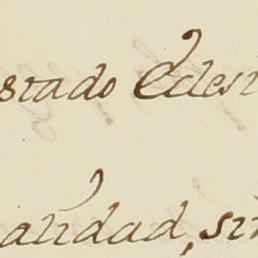 stado Ecles
alidad, sin